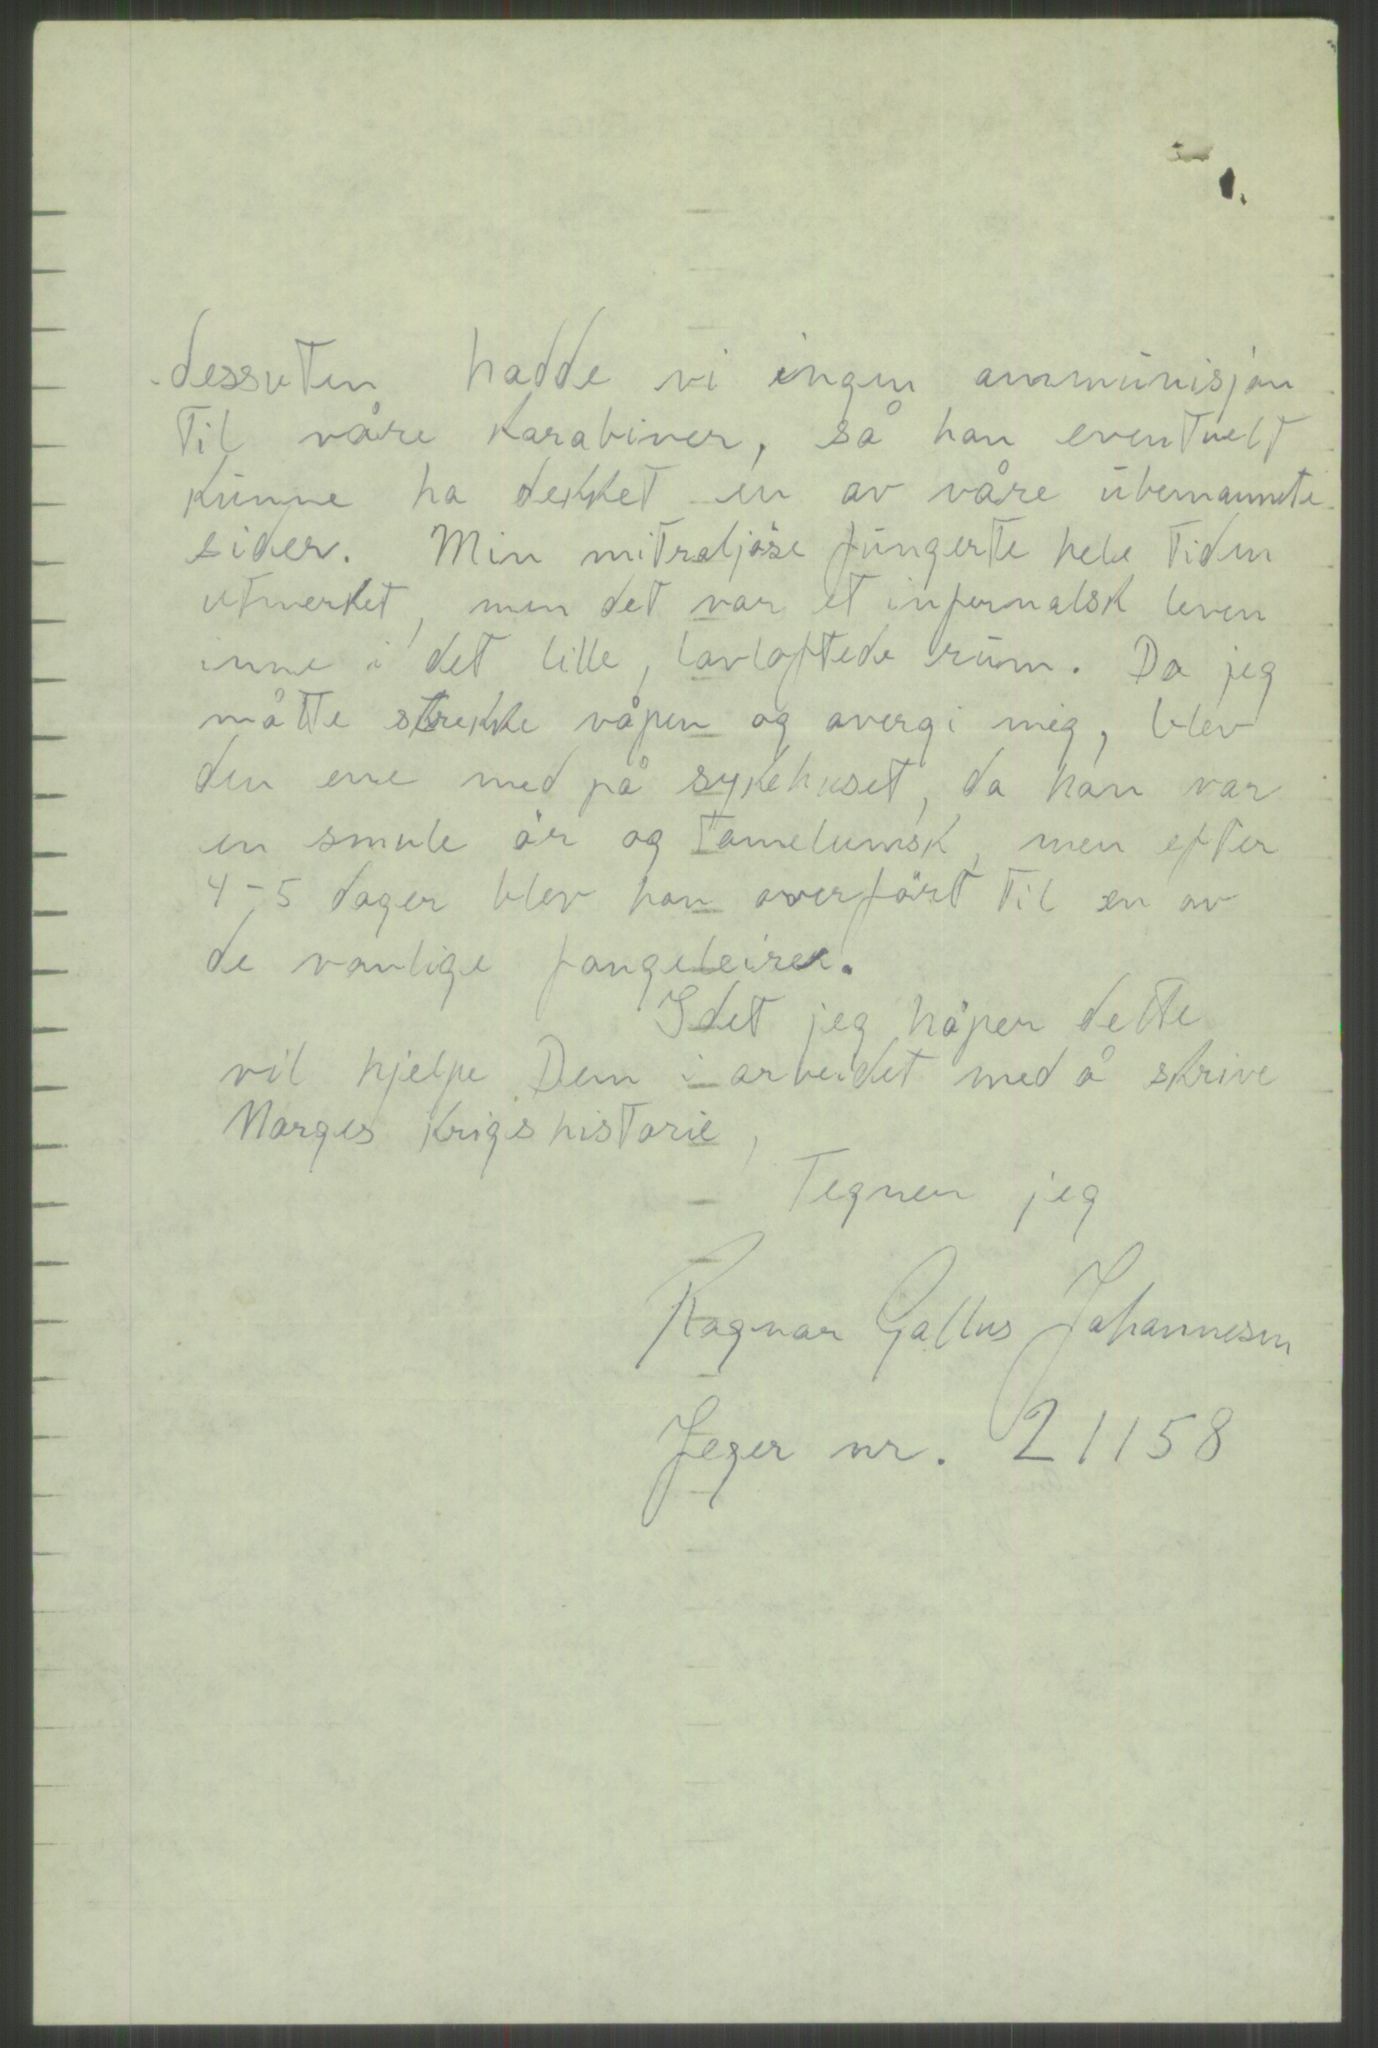 dessuten hadde vi ingen ammunisjon
til våre karabiner, så han eventuelt
kunne ha dekket en av våre ubemannete
sider. Min mitraljøse fungerte hele tiden
utmerket, men det var et infernalsk leven
inne i det lille, lavloftede rum. Da jeg
måtte strekke våpen og overgi mig, blev
den ene med på sykehuset, da han var
en smule ør og tomelumsk, men efter
4-5 dager blev han overført til en av
de vanlige fangeleirer.
Idet jeg håper dette
vil hjelpe Dem i arbeidet med å skrive
Norges Krigshistorie,
Tegner jeg
Ragnar Gallus Johannesen
Jeger nr. 21158